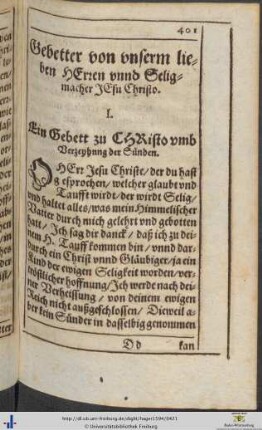 401
Gebetter von vnserm lie-
ben HErren vnnd Selig-
macher JEsu Christo.
I.
Ein Gebett zu CHRisto vmb
Verzeyhung der Sünden.
O HErr Jesu Christe / der du hast
gesprochen / welcher glaubt vnd
Taufft wirdt / der wirdt Selig /
vnd haltet alles / was mein Himmelischer
Vatter durch mich gelehrt vnd gebotten
hatt / Ich sag dir danck / daß ich zu dei-
ner H. Tauff kommen bin / vnnd dar-
durch ein Christ vnnd Gläubiger / ja ein
Kind der ewigen Seligkeit worden / ver-
tröstlicher hoffnung / Ich werde nach dei-
ner Verheissung / von deinem ewigen
Reich nicht außgeschlossen / Dieweil a-
ber kein Sünder in dasselbig genommen
Dd
kan
http://dl.ub.uni-freiburg.de/diglit/
© Universitätsbibliothek Freiburg